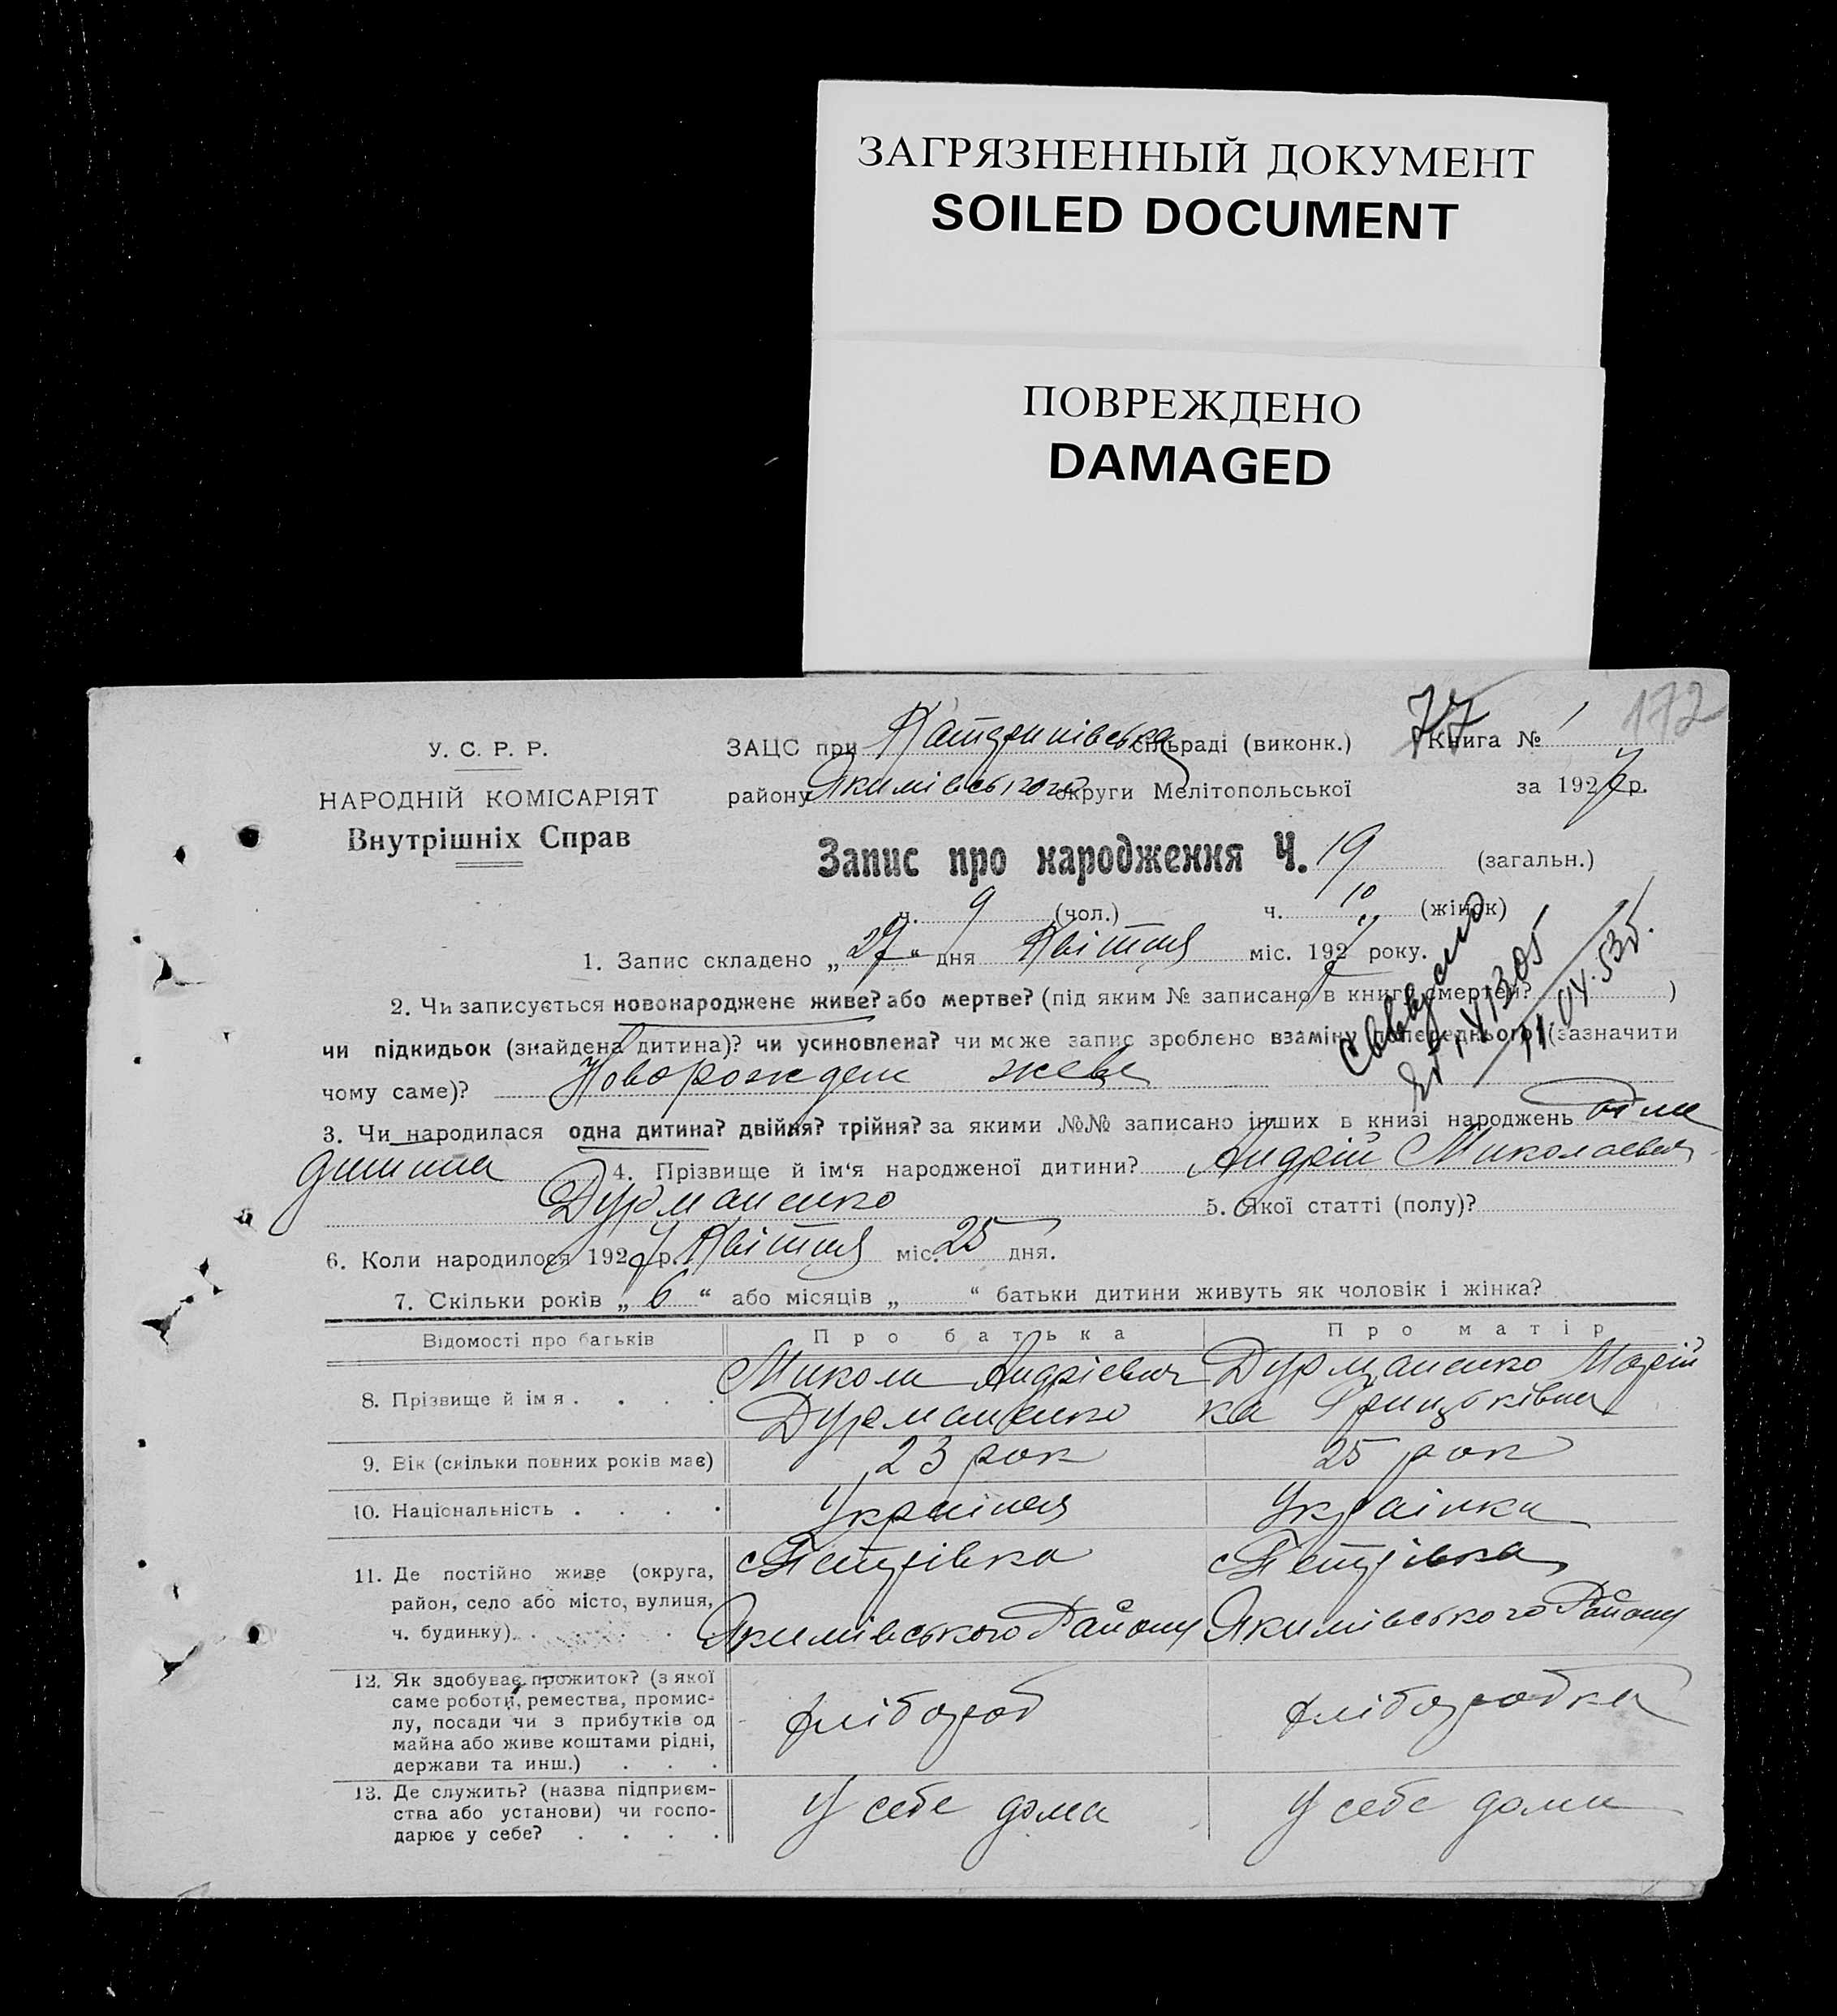 ЗАГРЯЗНЕННЫЙ ДОКУМЕНТ
SOILED DOCUMENT
ПОВРЕЖДЕНО
DAMAGED
77 172
У. С. Р. Р. ЗАЦС при сільраді (виконк.) Книга № 1
НАРОДНІЙ КОМІСАРІЯТ району Якимівського округи Мелітопольської за 1927 р.
Внутрішніх Справ
Запис про народження Ч. 19 (загальн.)
ч. 9 (чол.) ч. 10 (жінок)
1. Запис складено „27“ дня Квітня міс. 1927 року.
2. Чи записується новонароджене живе? або мертве? (під яким № записано в книгу смертей? )
чи підкидьок (знайдена дитина)? чи усиновлена? чи може запис зроблено взаміну попереднього? (зазначити
чому саме)? Новорожден живе
3. Чи народилася одна дитина? двійня? трійня? за якими №№ записано інших в книзі народжень
дитина 4. Прізвище й ім‘я народженої дитини? Андрій Миколаевич
Дурманенко 5. Якої статті (полу)?
6. Коли народилося 1927 р. Квітня міс. 25 дня.
7. Скільки років „6“ або місяців „ “ батьки дитини живуть як чоловік і жінка?
Відомості про батьків Про батька Про матір
8. Прізвище й ім я . . . . Микола Андріевич Дурманенко Марій
Дурманенко ка Грицьківна
9. Вік (скільки повних років має) 23 рок 25 рок
10. Національність . . . . Українец Українка
11. Де постійно живе (округа, с Петрівка с Петрівка
район, село або місто, вулиця,
ч. будинку). . . . Якимівського Району Якимівського Району
12. Як здобуває прожиток? (з якої
саме роботи, ремества, промис-
лу, посади чи з прибутків од хлібороб хліборобка
майна або живе коштами рідні,
держави та инш.) . . .
13. Де служить? (назва підприєм-
ства або установи) чи госпо- У себе дома У себе дома
дарює у себе? . . . .